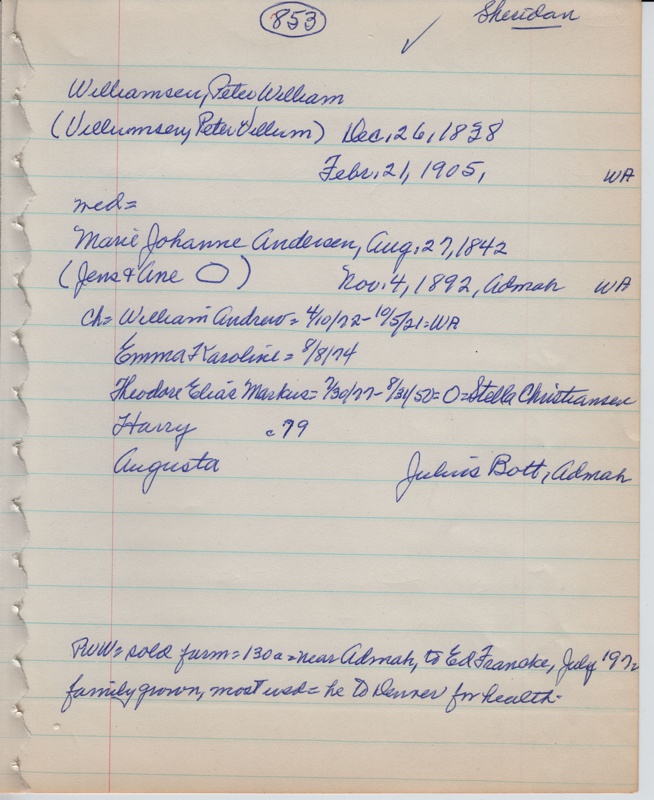 853
Sheridan
Williamsen, Peter William
(Villiumsen, Peter Villum) Dec. 26, 1838
Febr. 21, 1905, WA
med=
Marie Johanne Andersen, Aug. 27, 1842
(Jens & Ane O) Nov. 4, 1892, Admah WA
Ch= William Andrew= 4/10/72- 10/5/21=WA
Emma Karoline= 8/8/74
Theodore Elias Markus= 7/30/77- 8/31/50= O=Stella Christiansen
Harry c79
Augusta Julius Bott, Admah
PWW= sold farm=130a=near Admah, to Ed Francke, July
family grown, most used= he to Denver for health-